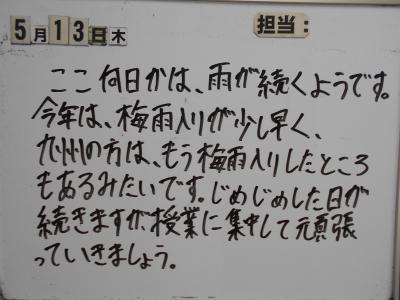 5月13日木 担当:
ここ何日かは、雨が続くようです。
今年は、梅雨入りが少し早く、
九州の方は、もう梅雨入りしたところ
もあるみたいです。じめじめした日が
続きますが、授業に集中して頑張
っていきましょう。